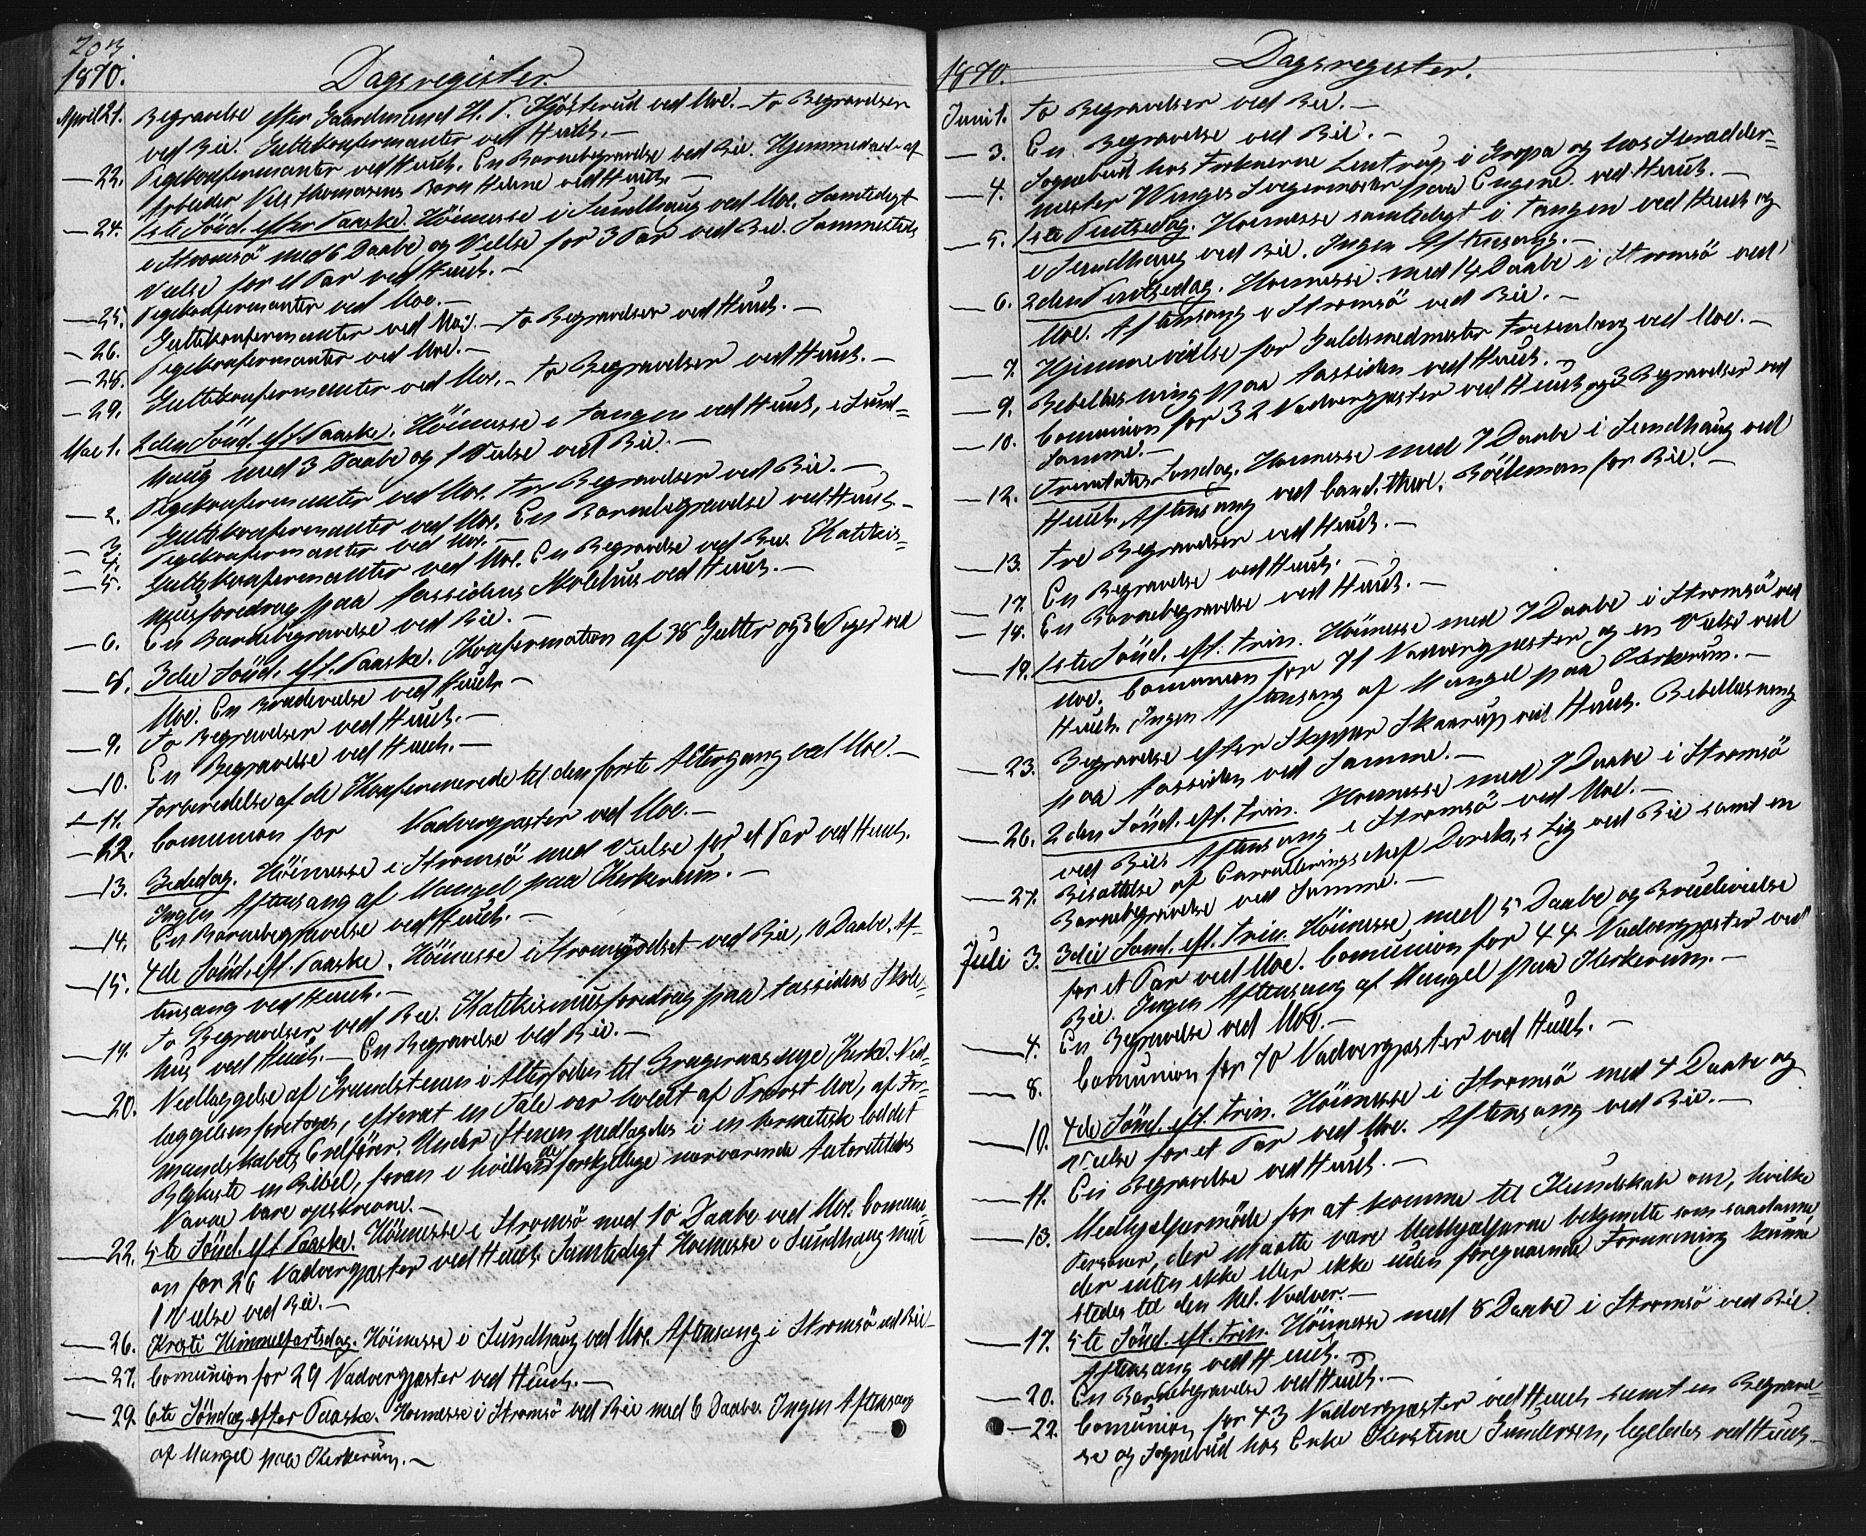 203
1870. Dagsregister.
April 21. Begravelse efter Gaardmand H. P. Kjösterud ved Moe. – To Begravelser
ved Bie. Guttekonfermanter ved Huus. –
— 22. Pigekonfermanter ved Huus. En Barnebegravelse ved Bie. Hjemmedaab af
Arbeider Nils Thomasens Barn Helene ved Huus. –
— 24. 1ste Sönd. efter Paaske. Höimesse i Sundhaug ved Moe. Samtidigt
i Strömsö med 6 Daabe og Vielse for 3 Par ved Bie. Sammesteds
Vielse for et Par ved Huus. –
— 25. Pigekonfermanter ved Moe. –
— 26. Guttekonfermanter ved Moe. – To Begravelser ved Huus. –
— 28. Pigekonfermanter ved Moe. –
— 29. Guttekonfermanter ved Moe. – To Begravelser ved Huus. –
Mai 1. 2den Sönd. eft. Paaske. Höimesse i Tangen ved Huus, i Sund-
haug med 3 Daabe og 1 Vielse ved Bie. –
— 2. Pigekonfermanter ved Moe. Tre Begravelser ved Bie. –
— 3. Guttekonfermanter ved Moe. En Barnebegravelse ved Huus. –
— 4. Pigekonfermanter ved Moe. –
— 5. Guttekonfermanter ved Moe. En Begravelse ved Bie. Katekis-
musforedrag paa Tassidens ved Huus. –
— 6. En Barnebegravelse ved Bie. –
— 8. 3die Sönd. eft. Paaske. Konfermation af 38 Gutter og 36 Piger ved
Moe. En Brudevielse ved Huus. –
— 9. To Begravelser ved Huus. –
— 10. En Begravelse ved Huus. –
— 11. Forberedelse af de Konfermerede til den förste Altergang ved Moe. –
— 12. Comunion for Nadvergjæster ved Moe. –
— 13. Bededag. Höimesse i Strömsö med Vielse for et Par ved Huus.
Ingen Aftensang af Mangel paa Kirkerum. –
— 14. En Barnebegravelse ved Huus. –
— 15. 4de Sönd. eft. Paaske. Höimesse i Strömsö ved Bie, 10 Daabe. Af-
tensang ved Huus. –
— 19. To Begravelser ved Bie. Katekismusforedrag paa Tassidens Skole-
hus ved Huus. – En Begravelse ved Bie. –
— 20. Nedlæggelse af Grundstenen i Alterfoden til Bragernæs nye Kirke. Ned-
læggelsen foretoges, efterat en Tale var holdt af Provst Moe, af For-
mandskabets Ordförer. Under Stenen nedlagdes i en hermetisk loddet
Blykiste en Bibel, foran i hvilken de forskjellige nærværende Autoriteters
Navne vare opskrevne. –
— 22. 5te Sönd. eft. Paaske. Höimesse i Strömsö med 10 Daabe ved Moe. Comuni-
on for 26 Nadvergjæster ved Huus. Samtidigt Höimesse i Sundhaug med
1 Vielse ved Bie. –
— 26. Kristi Himmelfartsdag. Höimesse i Sundhaug ved Moe. Aftensang i Strömsö ved Bie –
— 27. Comunion for 29 Nadvergjæster ved Huus. –
— 29. 6te Söndag efter Paaske. Höimesse i Strömsö ved Bie med 6 Daabe. Ingen Aftensang
af Mangel paa Kirkerum. –
1870. Dagsregister.
Juni 1. To Begravelser ved Bie. –
— 3. En Begravelse ved Bie. –
— 4. Sognebud hos Enkerne i Gropa og hos Skrædder-
mester Winges Svigermoder paa Engene ved Huus. –
— 5. 1ste Pintsedag. Höimesse samtidigt i Tangen ved Huus og
i Sundhaug ved Bie. Ingen Aftensang. –
— 6. 2den Pintsedag. Höimesse med 14 Daabe i Strömsö ved
Moe. Aftensang i Strömsö ved Bie. –
— 7. Hjemmevielse for Guldsmedmester Frisenberg ved Moe. –
— 9. Bibellæsning paa Tassiden ved Huus. –
— 10. Comunion for 32 Nadvergjæster ved Huus og 3 Begravelser ved
Samme. –
— 12. Trinitatis Söndag. Höimesse med 7 Daabe i Sundhaug ved
Huus. Aftensang ved Cand. theol. for Bie. –
— 13. Tre Begravelser ved Huus. –
— 17. En Begravelse ved Huus. –
— 18. En Barnebegravelse ved Huus. –
— 19. 1ste Sönd. eft. Trin. Höimesse med 7 Daabe i Strömsö ved
Moe. Comunion for 71 Nadvergjæster og en Vielse ved
Huus. Ingen Aftensang af Mangel paa Kirkerum. –
— 23. Begravelse efter Skipper Skaarup ved Huus. Bibellæsning
paa Tassiden ved Samme. –
— 26. 2den Sönd. eft. Trin. Höimesse med 7 Daabe i Strömsö
ved Bie. Aftensang i Strömsö ved Moe. –
— 27. Bisættelse af Lig ved Bie samt en
Barnebegravelse ved Samme. –
Juli 3. 3die Sönd. eft. Trin. Höimesse med 5 Daabe og Brudevielse
for et Par ved Moe. Comunion for 44 Nadvergjæster ved
Bie. Ingen Aftensang af Mangel paa Kirkerum. –
— 4. En Begravelse ved Moe. –
— 8. Comunion for 70 Nadvergjæster ved Huus. –
— 10. 4de Sönd. eft. Trin. Höimesse i Strömsö med 4 Daabe og
Vielse for et Par ved Moe. Aftensang ved Bie. –
— 11. En Begravelse ved Huus. –
— 13. Medhjælpermöde for at komme til Kundskab om, hvilke
Personer, der maatte være Medhjælperne bekjendte som saadanne
der enten ikke eller ikke uden foregaaende Formaning kunne
stedes til den hel. Nadver. –
— 17. 5te Sönd. eft. Trin. Höimesse med 8 Daabe i Strömsö ved Bie
Aftensang ved Huus. –
— 20. En Barnebegravelse ved Huus. –
— 22. Comunion for 43 Nadvergjæster ved Huus samt en Begravel-
se og Sognebud hos Enke Kirstine Gundersen, ligeledes ved Huus. –